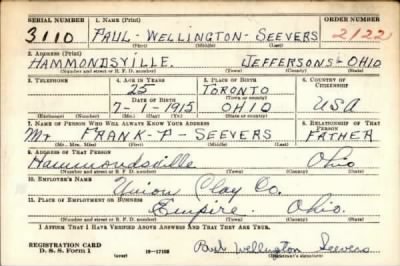 SERIAL NUMBER 1. NAME (Print) ORDER NUMBER
3110 PAUL - WELLINGTON - SEEVERS 2122
(First) (Middle) (Last)
2. ADDRESS (Print)
HAMMONDSVILLE. JEFFERSON OHIO
(Number and street or R. F. D. number) (Town) (County) (State)
3. TELEPHONE 4. AGE IN YEARS 5. PLACE OF BIRTH 6. COUNTRY OF CITIZENSHIP
25 TORONTO
DATE OF BIRTH (Town or county)
7-1-1915 OHIO USA
(Exchange) (Number) (Mo.) (Day) (Yr.) (State or country)
7. NAME OF PERSON WHO WILL ALWAYS KNOW YOUR ADDRESS 8. RELATIONSHIP OF THAT PERSON
Mr FRANK - P - SEEVERS FATHER
(Mr., Mrs., Miss) (First) (Middle) (Last)
9. ADDRESS OF THAT PERSON
Hammondsville Ohio
(Number and street or R. F. D. number) (Town) (County) (State)
10. EMPLOYER'S NAME
Union Clay Co.
11. PLACE OF EMPLOYMENT OR BUSINESS
Empire. Ohio.
(Number and street or R. F. D. number) (Town) (County) (State)
I AFFIRM THAT I HAVE VERIFIED ABOVE ANSWERS AND THAT THEY ARE TRUE.
REGISTRATION CARD
D. S. S. Form 1 (over) 16-17105 Paul Wellington Seevers
(Registrant's signature)